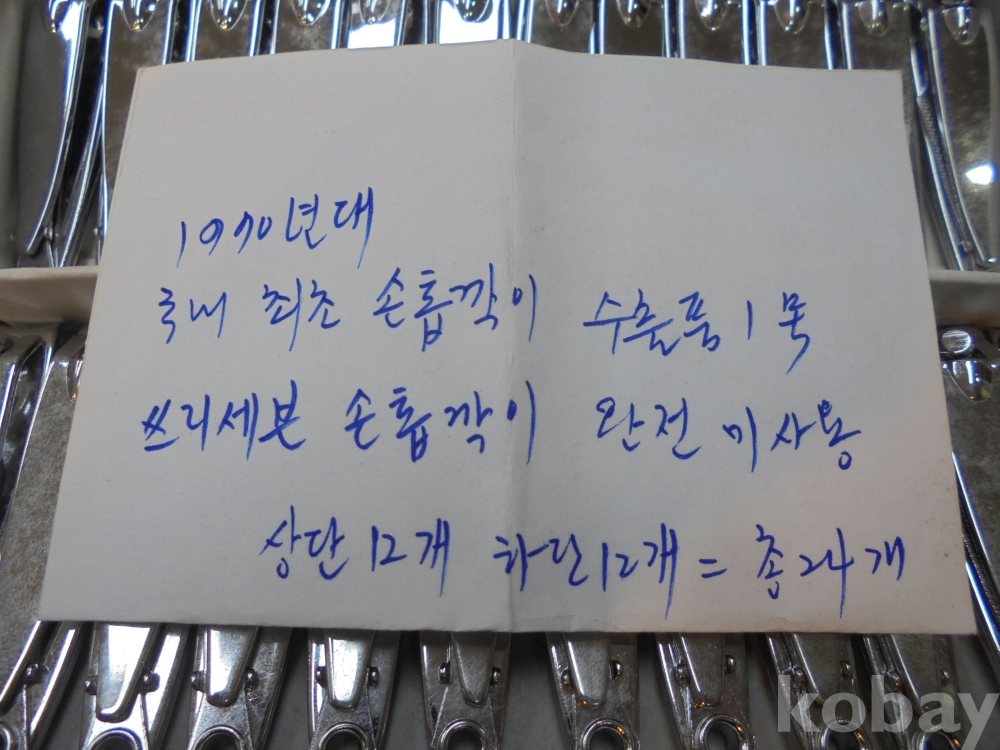 1970년대
국내 최초 손흡깍이 수출품 1 목
쓰리세븐 손흡깍이 완전 미사용
상단 12개 하단 12개 = 총 24개
kobay